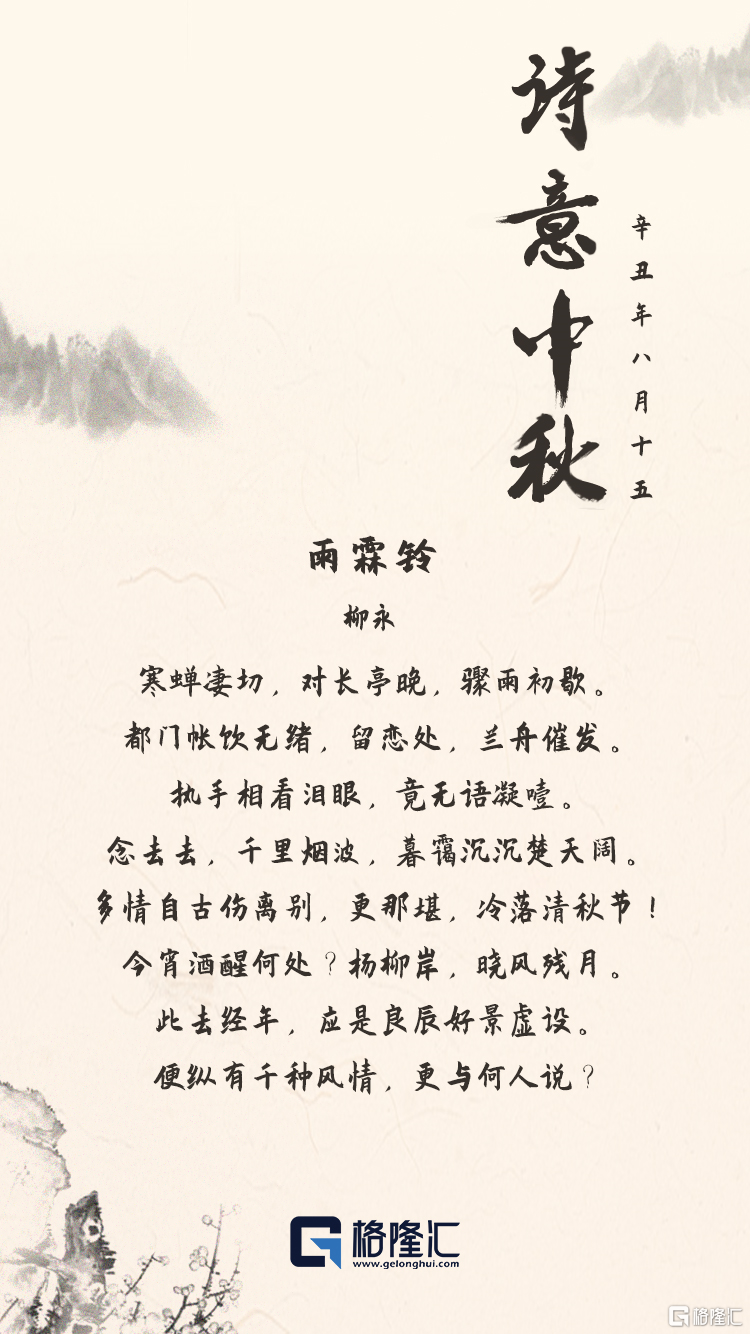 诗意中秋
辛丑年八月十五
雨霖铃
柳永
寒蝉凄切，对长亭晚，骤雨初歇。
都门帐饮无绪，留恋处，兰舟催发。
执手相看泪眼，竟无语凝噎。
念去去，千里烟波，暮霭沉沉楚天阔。
多情自古伤离别，更那堪，冷落清秋节！
今宵酒醒何处？杨柳岸，晓风残月。
此去经年，应是良辰好景虚设。
便纵有千种风情，更与何人说？
格隆汇
www.gelonghui.com
格隆汇